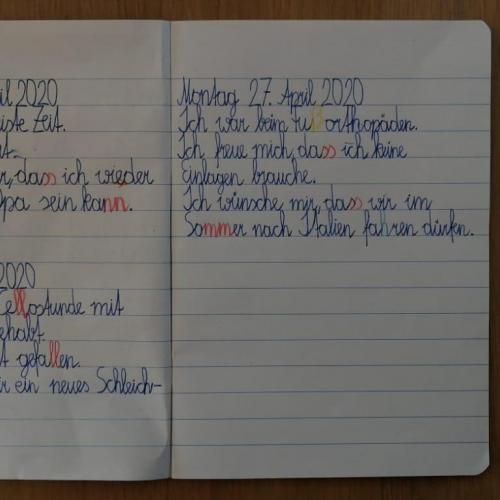 il 2020
ste Zeit.
t.
r, dass ich wieder
pa sein kann.
2020
Cellostunde mit
ehabt.
t gefallen.
ir ein neues Schleich-
Montag 27. April 2020
Ich war beim Fußorthopäden.
Ich freue mich, dass ich keine
Einlagen brauche.
Ich wünsche mir, dass wir im
Sommer nach Italien fahren dürfen.